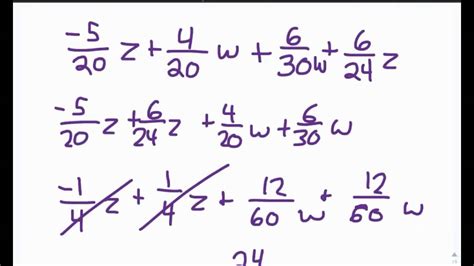 -5/20 z + 4/20 w + 6/30 w + 6/24 z
-5/20 z + 6/24 z + 4/20 w + 6/30 w
-1/4 z + 1/4 z + 12/60 w + 12/60 w
24